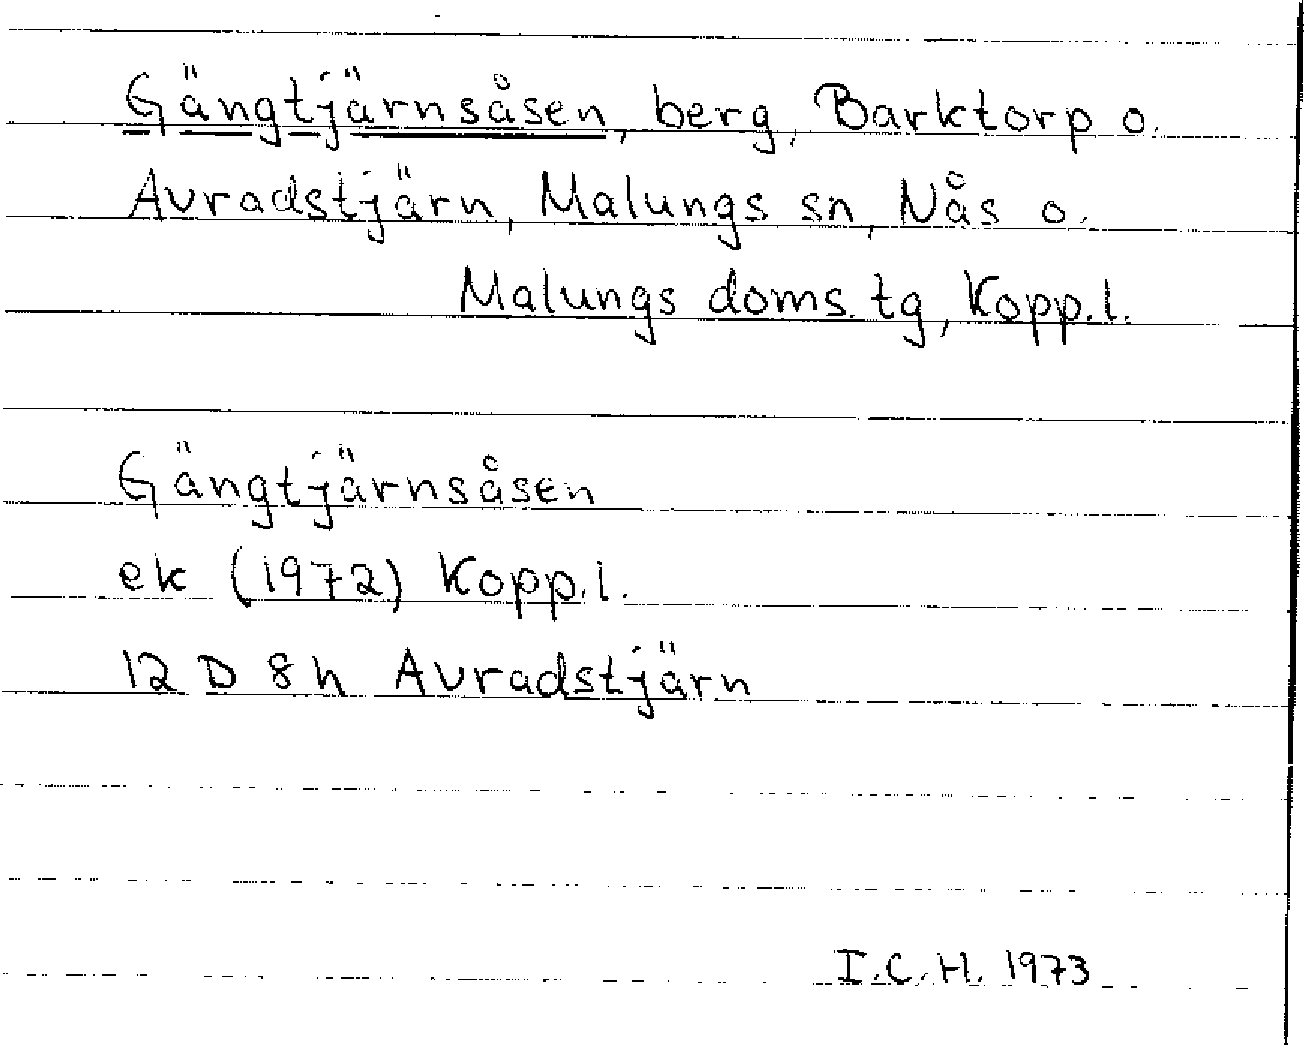 Gängtjärnsåsen, berg, Barktorp o.
Avradstjärn, Malungs sn, Nås o.
Malungs doms. tg, Kopp.l.
Gängtjärnsåsen
ek (1972) Kopp.l.
12 D 8 h Avradstjärn
I.C.H. 1973